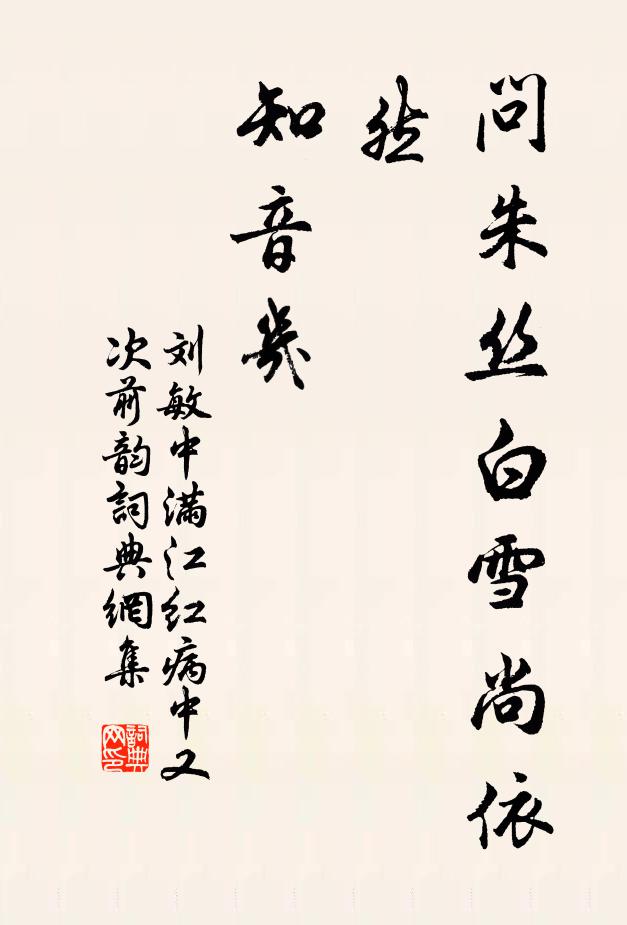 问朱丝白雪尚依
然
知音几
刘敏中满江红病中又
次前韵詞典網集
詞典
网印